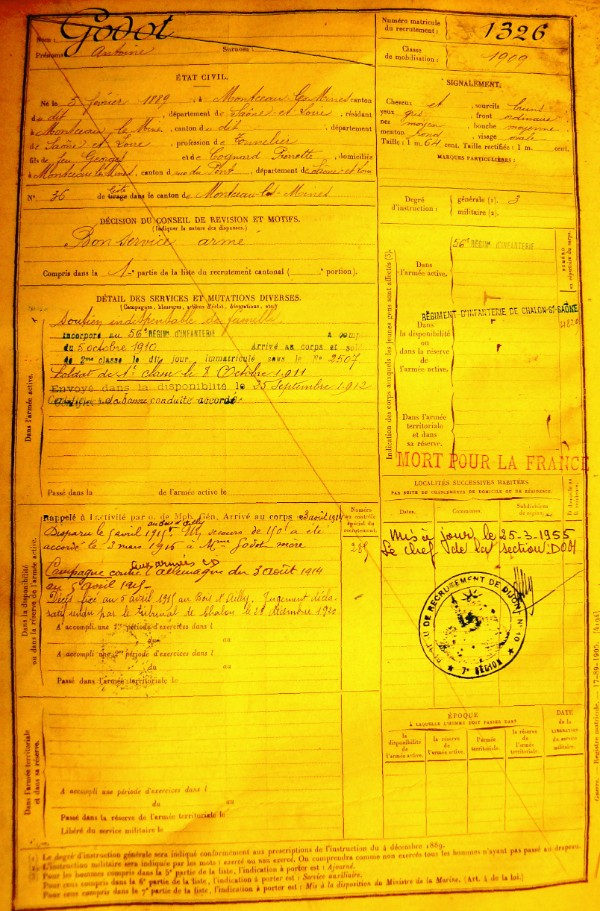 Nom : Godot
Prénoms : Antoine Surnoms :
Numéro matricule
du recrutement : 1326
Classe
de mobilisation : 1909
ÉTAT CIVIL.
Né le 5 février 1889 à Montceau les Mines canton
du dit, département de Saône et Loire, résidant
Montceau les Mines, canton du dit, département
de Saône et Loire, profession de Tonnelier
fils de feu Georges et de Cognard Pierrette, domiciliés
à Montceau les Mines, canton du dit, département de Saône et Loire
N° 36 de tirage dans le canton de Montceau les Mines
SIGNALEMENT.
Cheveux et sourcils bruns
yeux gris front ordinaire
nez moyen bouche moyenne
menton rond visage ovale
Taille : 1 m. 64 cent. Taille rectifiée : 1 m. cent.
MARQUES PARTICULIÈRES :
Degré
d'instruction : générale (1). 3
militaire (2).
DÉCISION DU CONSEIL DE REVISION ET MOTIFS.
(Indiquer la nature des dispenses)
Bon service armé
Compris dans la 1re partie de la liste du recrutement cantonal ( portion).
DÉTAIL DES SERVICES ET MUTATIONS DIVERSES.
(Campagnes, blessures, actions d'éclat, décorations, etc.)
Soutien indispensable de famille
incorporé au 56e RÉGIMt D'INFANTERIE à compter
du 5 octobre 1910 arrivé au corps et soldat
de 2me classe le dit jour, immatriculé sous le No 2507
Soldat de 1e classe le 8 Octobre 1911
Envoyé dans la disponibilité le 25 Septembre 1912
Certificat de bonne conduite accordé
Dans l'armée active.
Passé dans la de l'armée active le
Indication des corps auxquels les jeunes gens sont affectés (3).
Dans
l'armée active.
56e RÉGIMt D'INFANTERIE
RÉGIMENT D'INFANTERIE DE CHALON-St-SAÔNE
Dans
la disponibilité
ou dans
la réserve
de l'armée active.
Dans l'armée
territoriale
et dans
sa réserve.
MORT POUR LA FRANCE
LOCALITÉS SUCCESSIVES HABITÉES
PAR SUITE DE CHANGEMENTS DE DOMICILE OU DE RÉSIDENCE
Dates. Communes. Subdivisions
de région.
Mis à jour, le 25-3-1955
Le chef de la section
BUREAU DE RECRUTEMENT DE DIJON N° 10
★ 7e RÉGION ★
Dans la disponibilité
ou dans la réserve de l'armée active.
Rappelé à l'activité par o. de Mob. Gén. Arrivé au corps 3 août 1914
au bois d'Ailly
Disparu le 5 avril 1915. Un secours de 150f a été
accordé le 3 mars 1916 à Mme Godot mère
Campagne contre l'Allemagne du 3 août 1914
aux armées
au 5 avril 1915
Décès fixé au 5 avril 1915 au Bois d'Ailly. Jugement décla-
ratif rendu par le tribunal de Chalon le 28 décembre 1920
Numéro
au contrôle
spécial du
recrutement.
A accompli une 1re période d'exercices dans l
du au
A accompli une 2me période d'exercices dans l
du au
Passé dans l'armée territoriale le
Dans l'armée territoriale
et dans sa réserve.
A accompli une période d'exercices dans l
du au
Passé dans la réserve de l'armée territoriale le
Libéré du service militaire le
ÉPOQUE
À LAQUELLE L'HOMME DOIT PASSER DANS
la
disponibilité
de
l'armée active.
la réserve
de
l'armée active.
l'armée
territoriale.
la réserve
de
l'armée
territoriale.
DATE
de la
LIBÉRATION
du service
militaire.
(1) Le degré d'instruction générale sera indiqué conformément aux prescriptions de l'instruction du 4 décembre 1889.
(2) L'instruction militaire sera indiquée par les mots : exercé ou non exercé. On comprendra comme non exercés tous les hommes n'ayant pas passé au drapeau.
(3) Pour les hommes compris dans la 5e partie de la liste, l'indication à porter est : Ajourné.
Pour ceux compris dans la 6e partie de la liste, l'indication à porter est : Service auxiliaire.
Pour ceux compris dans la 7e partie de la liste, l'indication à porter est : Mis à la disposition du Ministre de la Marine. (Art. 4 de la loi.)